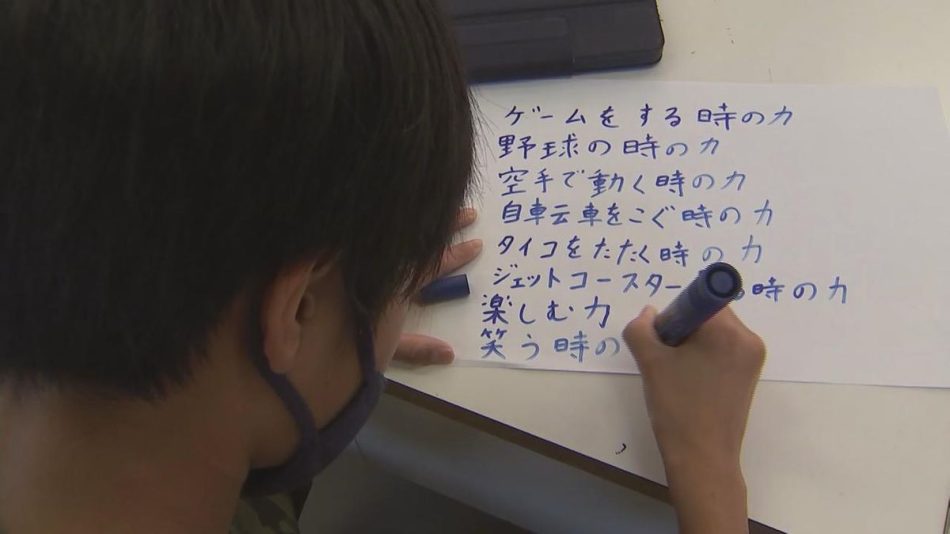 ゲームをする時の力
野球の時の力
空手で動く時の力
自転車をこぐ時の力
タイコをたたく時の力
ジェットコースター 時の力
楽しむ力
笑う時の